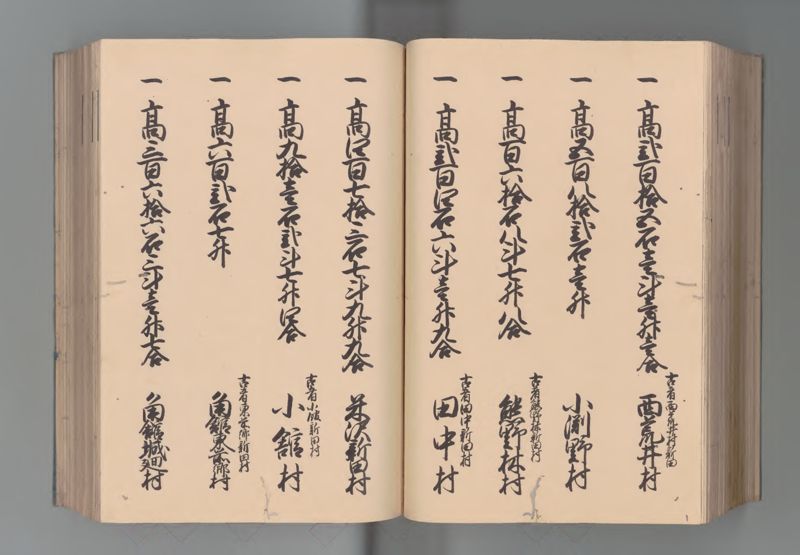 一 高弐百拾五石壱斗壱升壱合
古者西荒井村新田
西荒井村
一 高五百八拾弐石壱升
小渕野村
一 高百六拾石八斗七升八合
古者熊野林新田村
熊野林村
一 高弐百四石六斗壱升九合
古者田中新田村
田中村
一 高四百七拾三石七斗九升九合
米沢新田村
一 高九拾壱石弐斗七升四合
古者小館新田村
小館村
一 高六百弐石七升
古者東前郷新田村
角館東前郷村
一 高三百六拾六石三斗壱升七合
角館城廻村